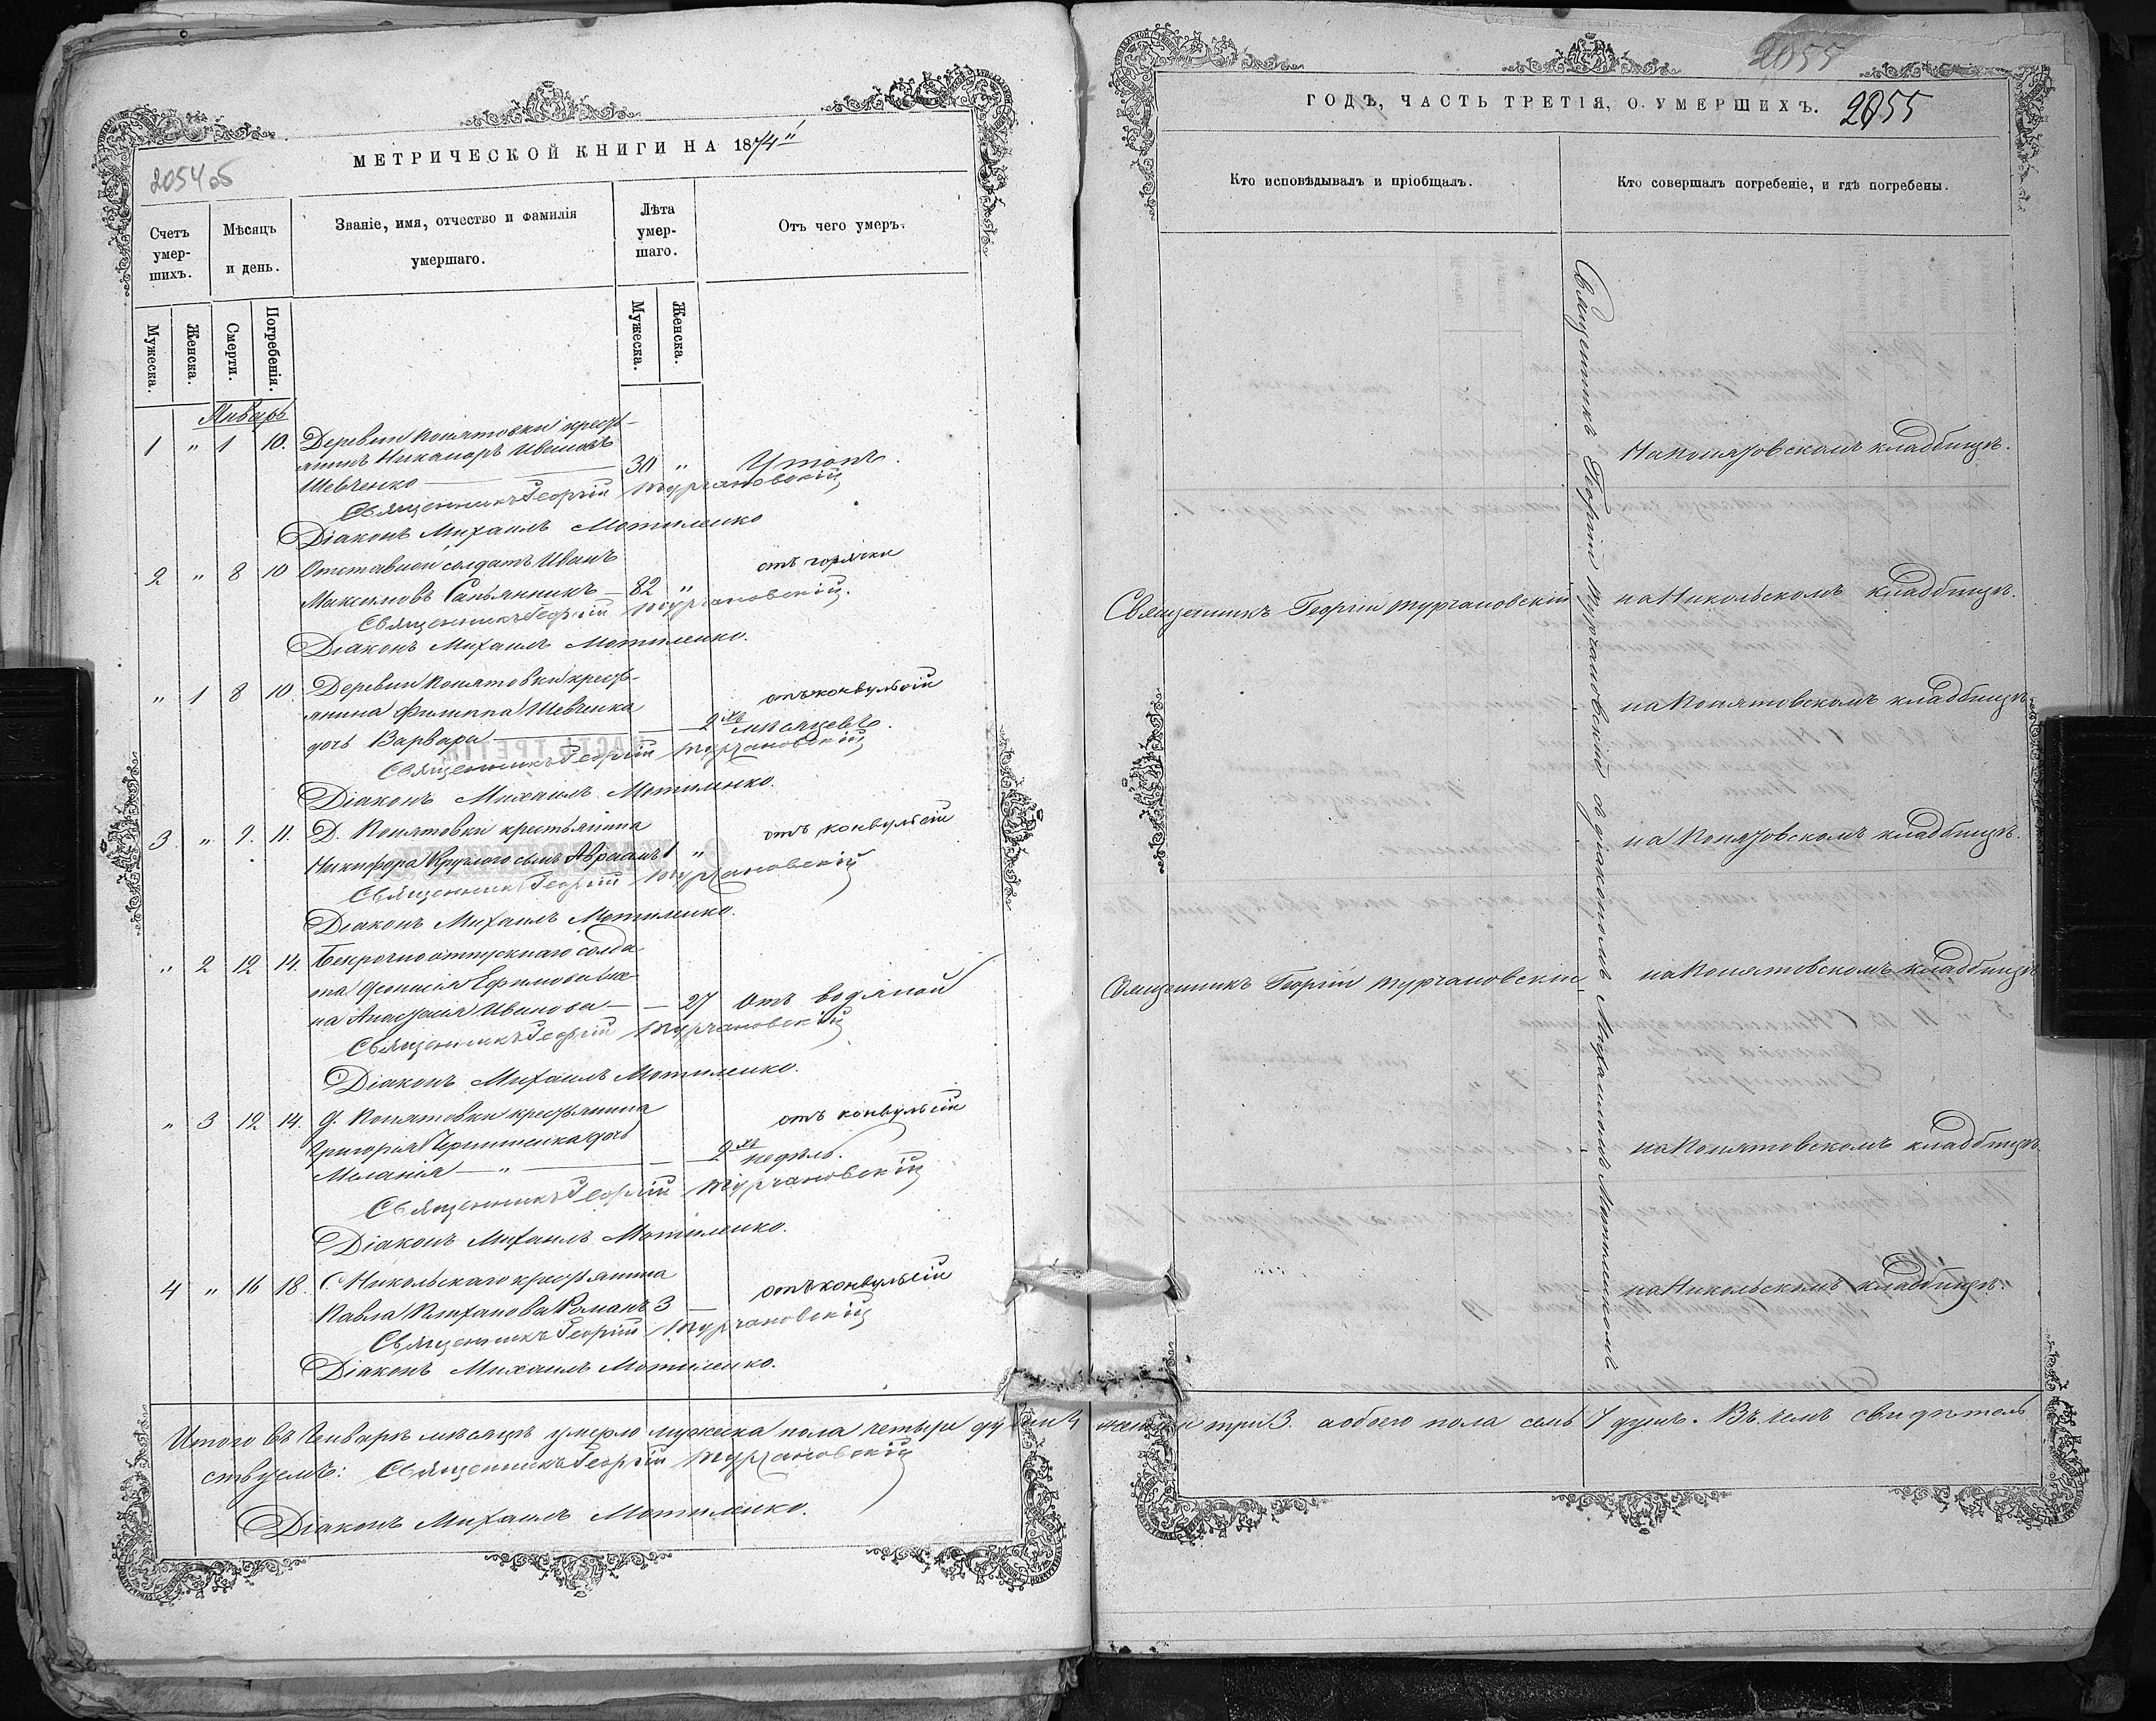 2054об
МЕТРИЧЕСКОЙ КНИГИ НА 1874й
Счетъ умершихъ.
Мѣсяцъ и день.
Званіе, имя, отчество и фамилія умершаго.
Лѣта умершаго.
Отъ чего умеръ.
Мужеска.
Женска.
Смерти.
Погребенія.
Мужеска.
Женска.
Январь
1 " 1 10. Деревни Копятовки крестьянинъ Никаноръ Ивановъ
Шевченко 30 " Утопъ.
Священникъ Георгій Турчановскій
Діаконъ Михаилъ Мотиленко
2 " 8 10 Отставной солдатъ Иванъ
Максимовъ Сапьянникъ 82 " отъ горячки
Священникъ Георгій Турчановскій.
Діаконъ Михаилъ Мотиленко.
" 1 8 10 Деревни Копятовки крестьянина Филиппа Шевченка
дочь Варвара 2хъ мѣсяцевъ. отъ конвульсій
Священникъ Георгій Турчановскій
Діаконъ Михаилъ Мотиленко.
3 " 9. 11. Д. Копятовки крестьянина
Никифора Круглого сынъ Авраамъ 1 " отъ конвульсій
Священникъ Георгій Турчановскій
Діаконъ Михаилъ Мотиленко.
" 2 12 14. Безсрочноотпускнаго солдата Феонисія Ефимова жена Анастасія Иванова — 27 отъ водяной
Священникъ Георгій Турчановскій
Діаконъ Михаилъ Мотиленко.
" 3 12 14. Д. Копятовки крестьянина
Григорія дочь
Меланія — " — 2хъ недѣль. отъ конвульсій
Священникъ Георгій Турчановскій
Діаконъ Михаилъ Мотиленко.
4 " 16 18. С. Никольскаго крестьянина
Павла Романъ 3 — отъ конвульсій
Священникъ Георгій Турчановскій
Діаконъ Михаилъ Мотиленко.
Итого въ Январѣ мѣсяцѣ умерло мужеска пола четыре души 4 женска три 3 а обоего пола семь 7 душъ. Въ чемъ свидѣтель
ствуемъ: Священникъ Георгій Турчановскій
Діаконъ Михаилъ Мотиленко.
2055
ГОДЪ, ЧАСТЬ ТРЕТІЯ, О УМЕРШИХЪ. 2055
Кто исповѣдывалъ и пріобщалъ.
Кто совершалъ погребеніе, и гдѣ погребены.
Священникъ Георгій Турчановскій съ діакономъ Михаиломъ Мотиленкомъ
На Копятовскомъ кладбищѣ.
Священникъ Георгій Турчановскій
на Никольскомъ кладбищѣ.
на Копятовскомъ кладбищѣ.
на Копятовскомъ кладбищѣ.
Священникъ Георгій Турчановскій
на Копятовскомъ кладбищѣ
на Копятовскомъ кладбищѣ.
на Никольскомъ кладбищѣ.